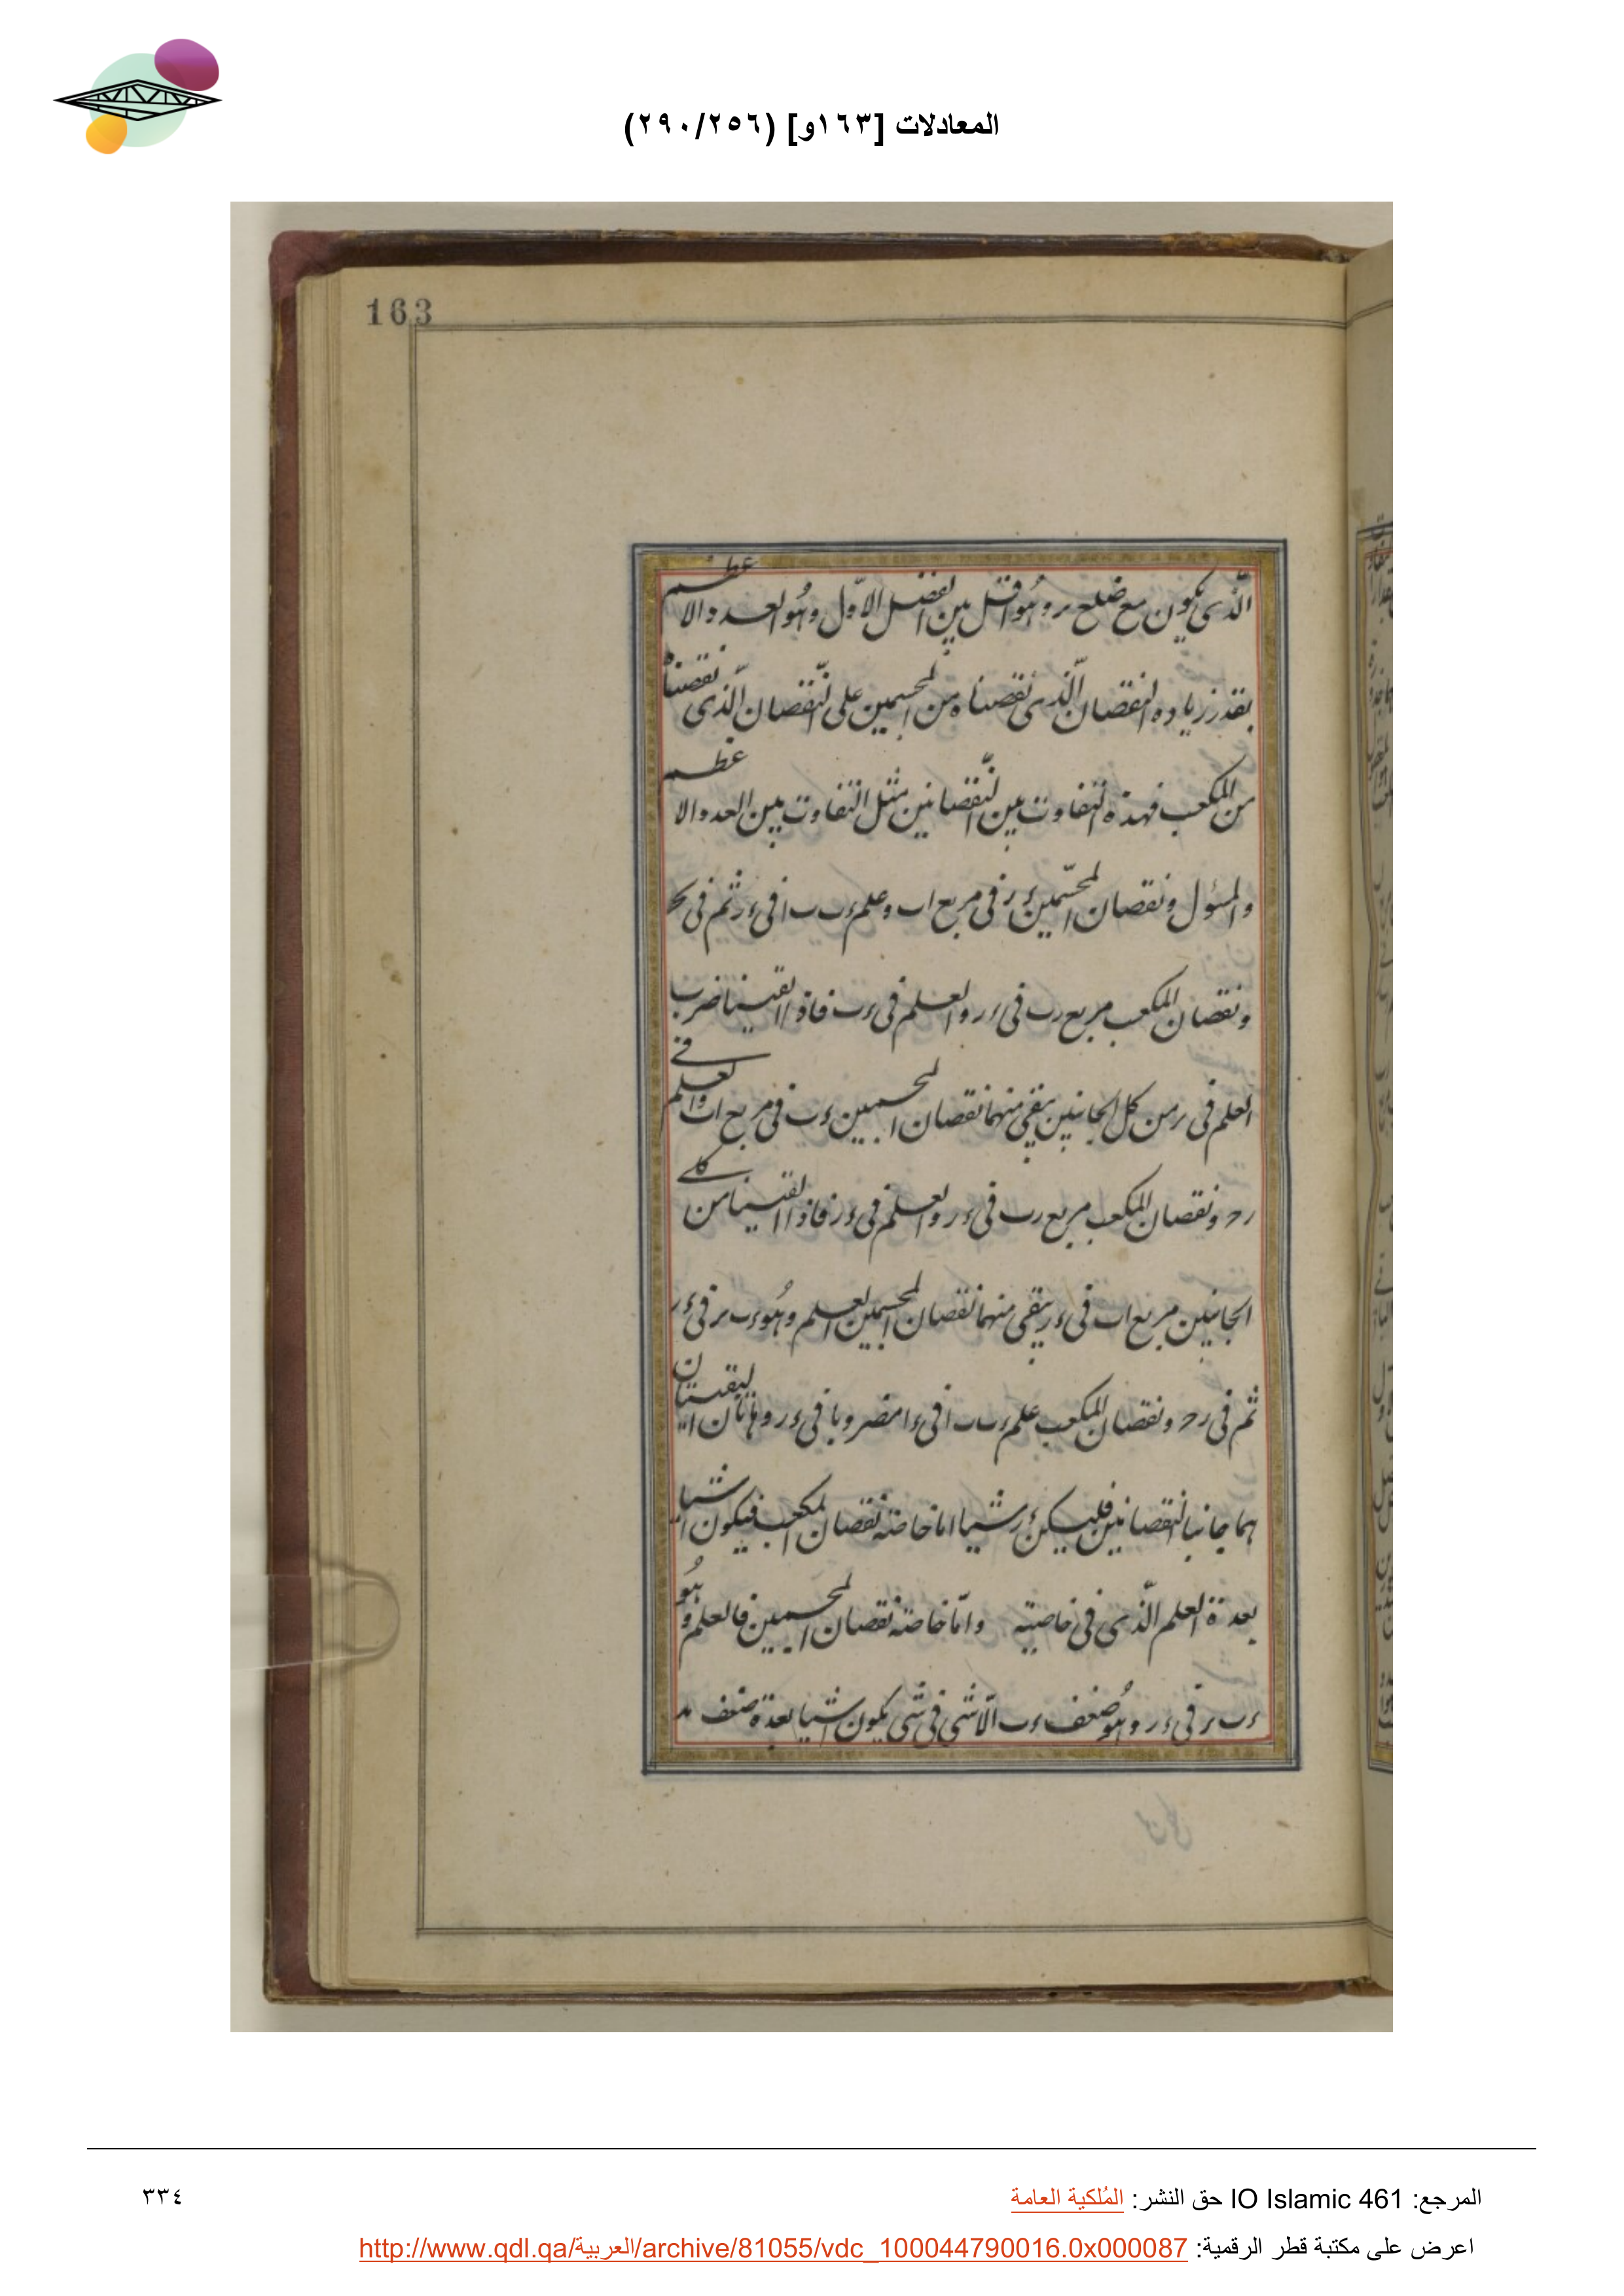 المعادلات [١٦٣و] (٢٩٠/٢٥٦)
163
الّذى يكون مع ضلع بر وهُو اقل بين الفضل الاوّل وهُو العدد والاعظم
بقدر زياده النقصان الّذى نقصناه من المجسمين على النّقصان الّذى نقصناه
من المكعب فهذه التفاوت بين النّقصانين مثل التفاوت بين العدد الاعظم
والمسؤل ونقصان المجسّمين ءر فى مربع اب وعلم ءب ب ا فى ءر ثم فى
ونقصان المكعب مربع رب فى ءر والعلم فى ءب فاذا القينا ضرب
العلم فى بر من كل الجانبين يبقى منهما نقصان المجسمين ءب فى مربع اب والعلم فى
رح ونقصان المكعب مربع رب فى ءر والعلم فى ءر فاذا القينا من كلى
الجانبين مربع اب فى ءر يبقى منهما نقصان المجسمين العلم وهُو ءب بر فى ءر
ثم فى رح ونقصان المكعب علم ءب ب ا فى ءا مضروبا فى ءر وهاتان البقيتان
هما جانبا النقصانين فليكن ءر شيا اما خاصة نقصان المكعب فيكون اشيا
بعدة العلم الّذى فى خاصيته وامّا خاصة نقصان المجسمين فالعلم وهُو
ءب بر فى ءر وهُو ضعف ءب الّا شى فى شى يكون اشيا بعدة ضعف
المرجع: IO Islamic 461 حق النشر: المُلكية العامة
٣٣٤
اعرض على مكتبة قطر الرقمية: http://www.qdl.qa/العربية/archive/81055/vdc_100044790016.0x000087